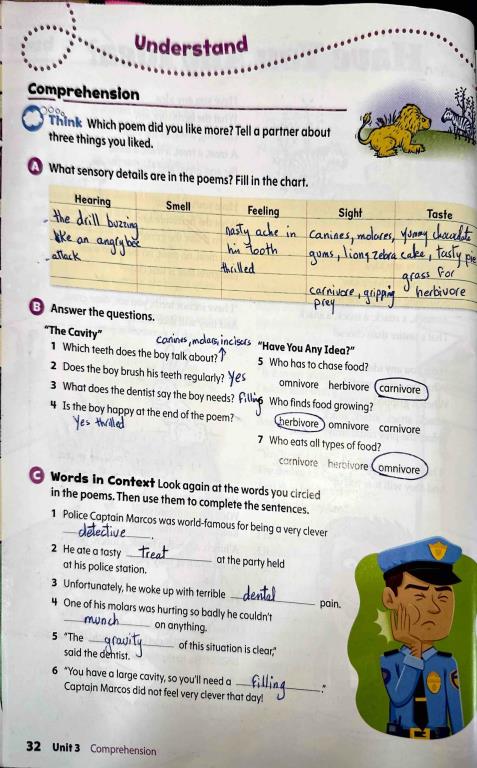 Understand
Comprehension
Think Which poem did you like more? Tell a partner about
three things you liked.
A What sensory details are in the poems? Fill in the chart.
Hearing Smell Feeling Sight Taste
the drill buzzing nasty ache in canines, molares, yummy chocolate
like an angry bee his tooth gums, lion, zebra cake, tasty pie
attack thrilled grass for
carnivore, gripping herbivore
prey
B Answer the questions.
"The Cavity" canines, molars, incisors
1 Which teeth does the boy talk about?
2 Does the boy brush his teeth regularly? Yes
3 What does the dentist say the boy needs? Filling
4 Is the boy happy at the end of the poem?
Yes thrilled
"Have You Any Idea?"
5 Who has to chase food?
omnivore herbivore carnivore
Who finds food growing?
herbivore omnivore carnivore
7 Who eats all types of food?
carnivore herbivore omnivore
C Words in Context Look again at the words you circled
in the poems. Then use them to complete the sentences.
1 Police Captain Marcos was world-famous for being a very clever
detective.
2 He ate a tasty treat at the party held
at his police station.
3 Unfortunately, he woke up with terrible dental pain.
4 One of his molars was hurting so badly he couldn't
munch on anything.
5 "The gravity of this situation is clear,"
said the dentist.
6 "You have a large cavity, so you'll need a filling."
Captain Marcos did not feel very clever that day!
32 Unit 3 Comprehension